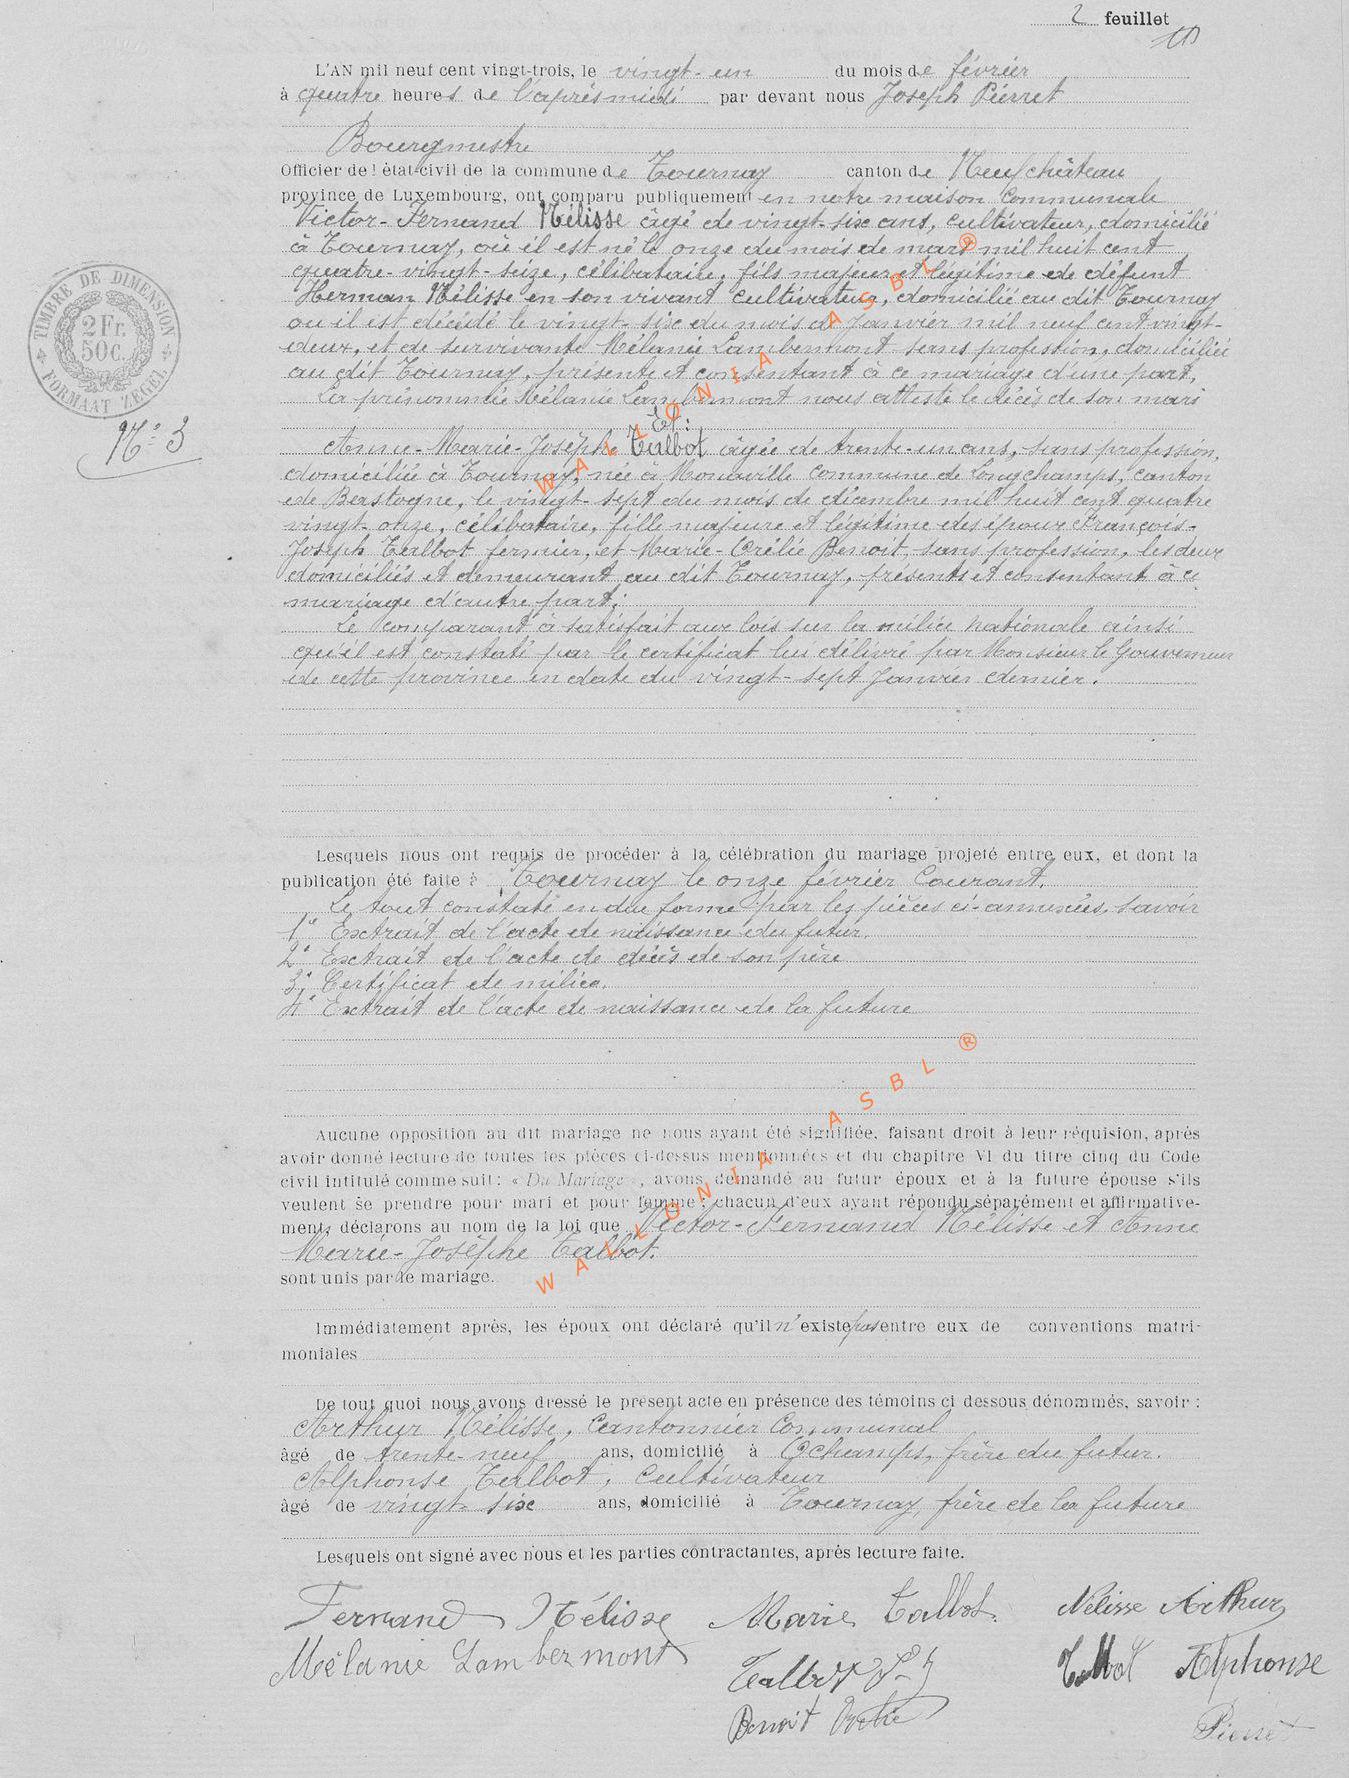 2 feuillet
L'AN mil neuf cent vingt-trois, le vingt-un du mois de février
à quatre heures de l'aprèsmidi par devant nous Joseph Pierret
Bourgmestre
Officier de l'état-civil de la commune de Tournay canton de Neufchâteau
province de Luxembourg, ont comparu publiquement en notre maison Communale
Victor-Fernand Nélisse âgé de vingt-six ans, cultivateur, domicilié
à Tournay, où il est né le onze du mois de mars mil huit cent
quatre-vingt-seize, célibataire, fils majeur et légitime de défunt
Herman Nélisse en son vivant cultivateur, domicilié au dit Tournay
ou il est décédé le vingt-six du mois de Janvier mil neuf cent vingt-
deux, et de survivante Mélanie Lambermont sans profession, domiciliée
au dit Tournay, présente et consentant à ce mariage d'une part,
La prénommée Mélanie Lambermont nous atteste le décès de son mari
Et:
Anne-Marie-Josèphe Talbot âgée de trente-un ans, sans profession,
domiciliée à Tournay, née à Monaville commune de Longchamps, canton
de Bastogne, le vingt-sept du mois de décembre mil huit cent quatre
vingt-onze, célibataire, fille majeure et légitime des époux François-
Joseph Talbot fermier, et Marie-Orélie Benoit, sans profession, les deux
domiciliés et demeurant au dit Tournay, présents et consentant à ce
mariage d'autre part;
Le comparant à satisfait aux lois sur la milice nationale ainsi
qu'il est constaté par le certificat lui délivré par Monsieur le Gouverneur
de cette province en date du vingt-sept Janvier dernier.
TIMBRE DE DIMENSION
2 Fr.
50 C.
FORMAAT ZEGEL
N° 3
Lesquels nous ont requis de procéder à la célébration du mariage projeté entre eux, et dont la
publication été faite à Tournay le onze février Courant.
Le tout constaté en due forme par les pièces ci-annexées, savoir
1° Extrait de l'acte de naissance du futur.
2° Extrait de l'acte de décès de son père
3° Certificat de milice.
4° Extrait de l'acte de naissance de la future
Aucune opposition au dit mariage ne nous ayant été signifiée, faisant droit à leur réquision, après
avoir donné lecture de toutes les pièces ci-dessus mentionnées et du chapitre VI du titre cinq du Code
civil intitulé comme suit: « Du Mariage », avons demandé au futur époux et à la future épouse s'ils
veulent se prendre pour mari et pour femme: chacun d'eux ayant répondu séparément et affirmative-
ment, déclarons au nom de la loi que Victor-Fernand Nélisse et Anne
Marie-Josèphe Talbot.
sont unis par le mariage.
Immédiatement après, les époux ont déclaré qu'il n'existe pas entre eux de conventions matri-
moniales
De tout quoi nous avons dressé le présent acte en présence des témoins ci dessous dénommés, savoir :
Arthur Nélisse, Cantonnier Communal
âgé de trente-neuf ans, domicilié à Ochamps, frère du futur.
Alphonse Talbot, Cultivateur
âgé de vingt-six ans, domicilié à Tournay, frère de la future
Lesquels ont signé avec nous et les parties contractantes, après lecture faite.
Fernand Nélisse Marie Talbot. Nélisse Arthur
Mélanie Lambermont Talbot F-J Talbot Alphonse
Benoit Orélie Pierret
WALLONIA ASBL ®
WALLONIA ASBL ®